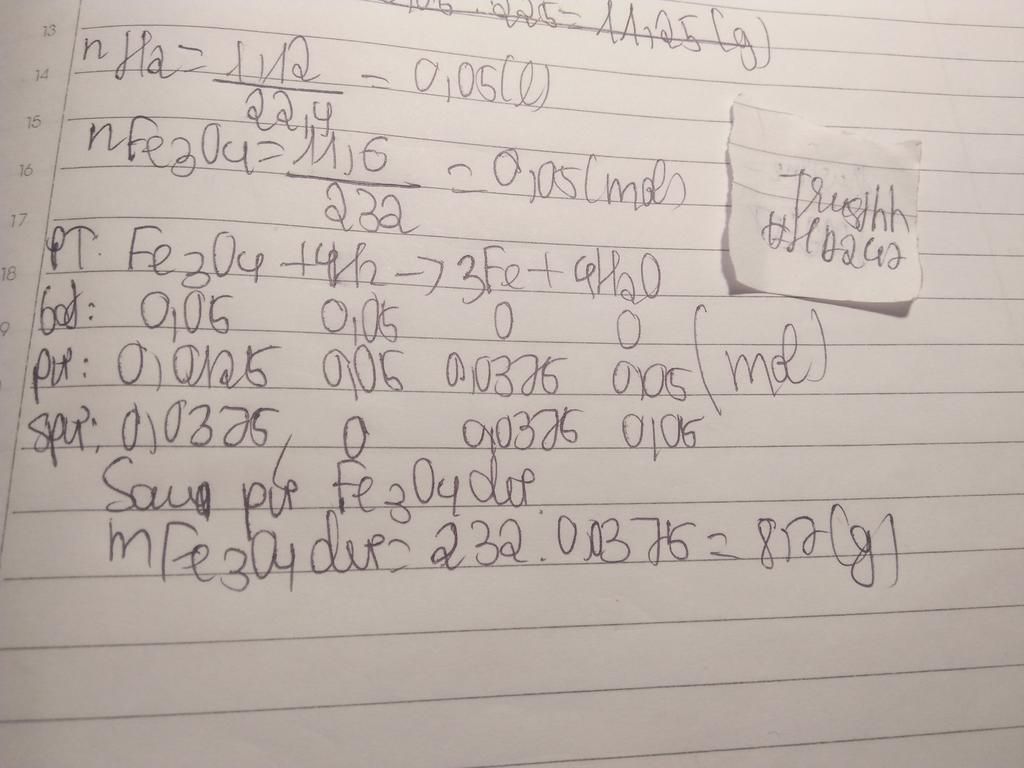 225 = 11,25 (g)
13
nH2 = 1,12 / 22,4 = 0,05 (l)
14
15
nFe3O4 = 11,6 / 232 = 0,05 (mol)
16
17
PT: Fe3O4 + 4H2 -> 3Fe + 4H2O
18
bđ: 0,05 0,05 0 0 (mol)
9
pư: 0,0125 0,05 0,0375 0,05
spư: 0,0375 0 0,0375 0,05
Sau pư Fe3O4 dư
mFe3O4 dư = 232 . 0,0375 = 8,7 (g)